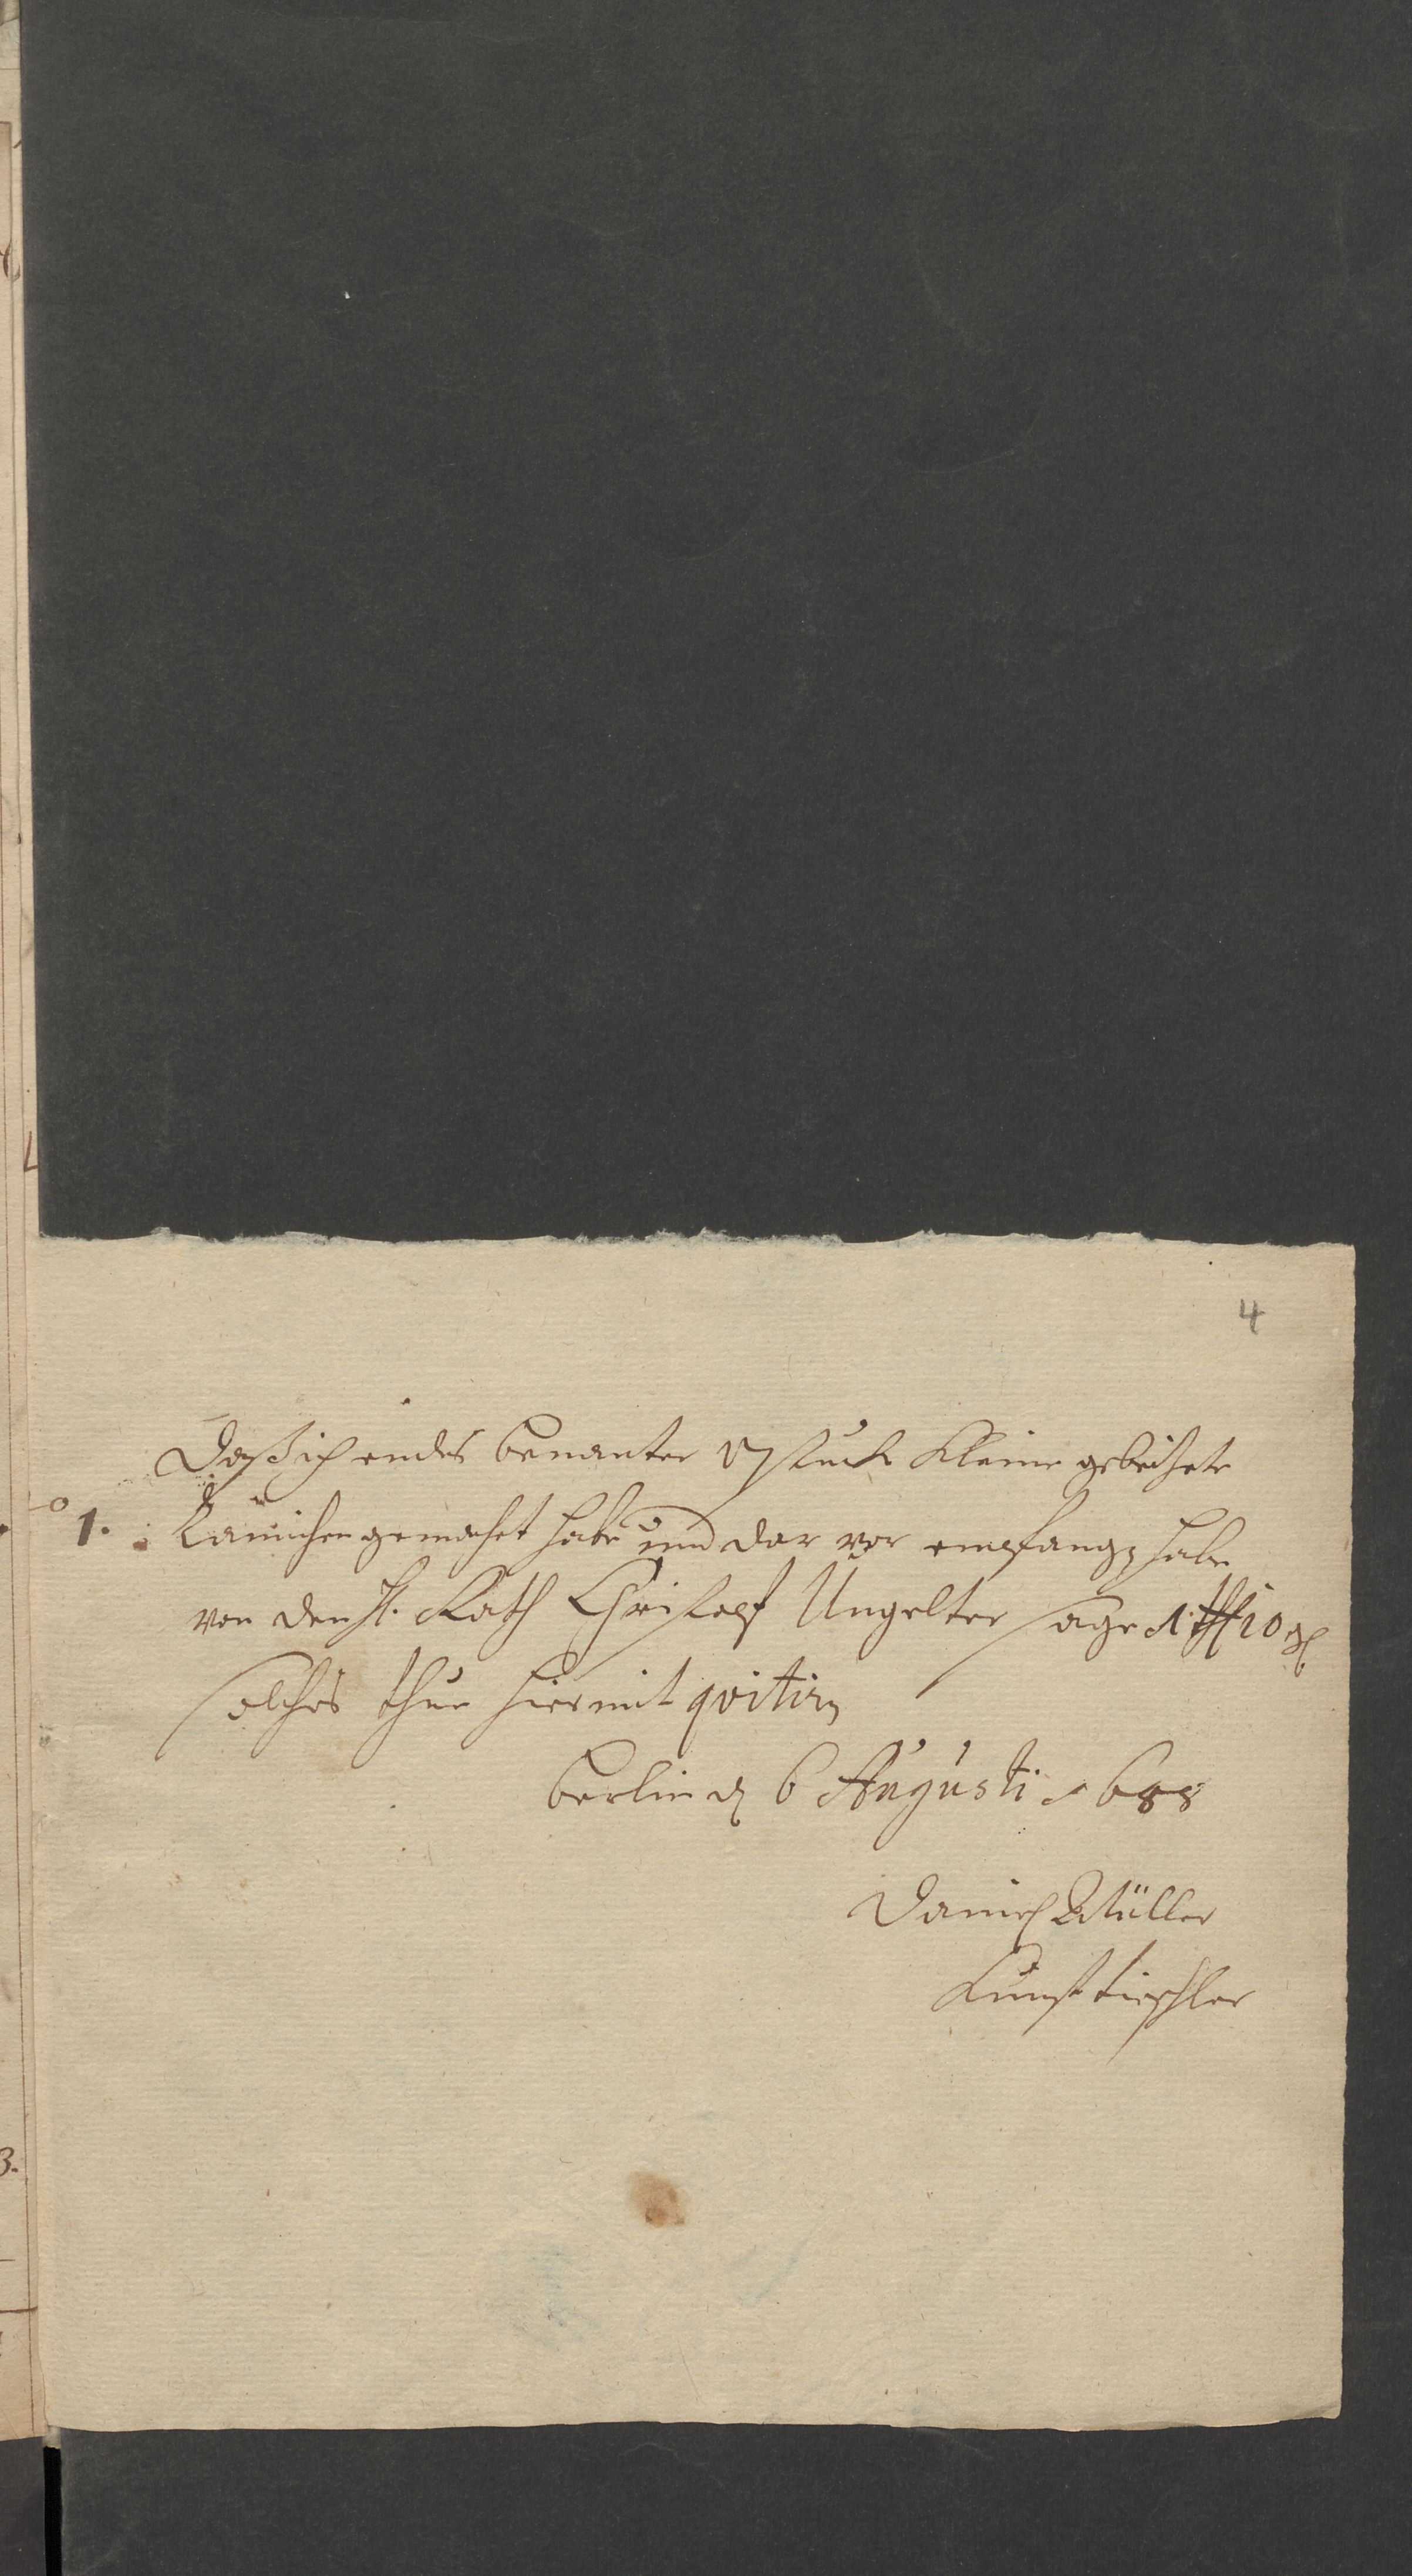 4
Daß ich endes benanter 17 stuck kleine gebeitzte
1. Ramichen gemachet habe und dar vor empfangen habe
von den H. Rath Christopf Ungelter sage 1 Thl 10 gl
solches thue hiermit qvitirn
berlin d 6 Augusti 1688
Daniel Müller
Kunst tischler